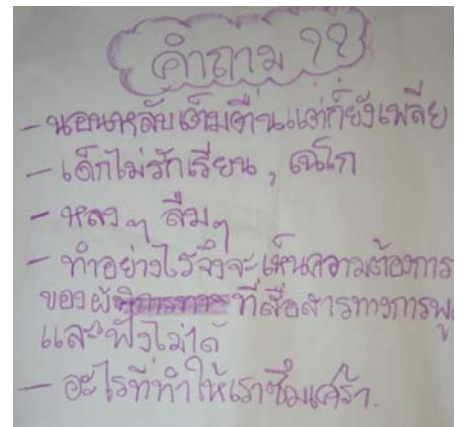 คำถาม ??
- นอนหลับเต็มตื่นแต่ก็ยังเพลีย
- เด็กไม่รักเรียน,
- หลงๆ ลืมๆ
- ทำอย่างไรจึงจะเห็นความต้องการ
ของผู้พิการทาง ที่สื่อสารทางการพู
และฟังไม่ได้
- อะไรที่ทำให้เราซึมเศร้า.